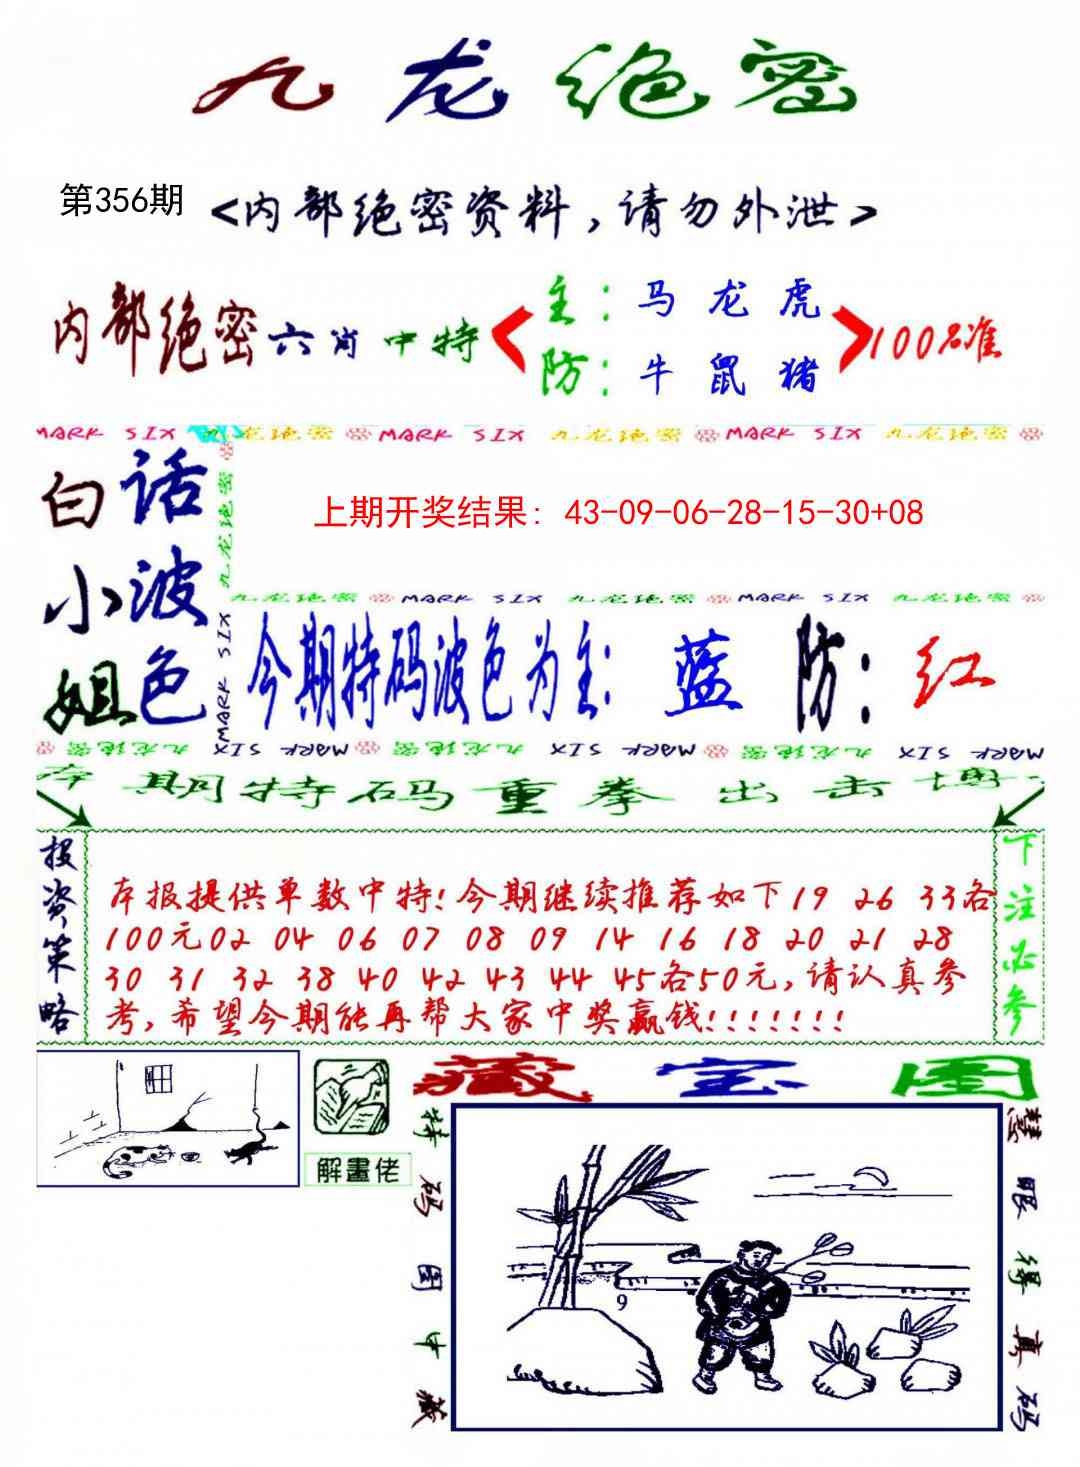 九龙绝密
第356期 <内部绝密资料，请勿外泄>
内部绝密六肖中特
主：马 龙 虎
防：牛 鼠 猪
100%准
MARK SIX 九龙绝密 MARK SIX 九龙绝密 MARK SIX 九龙绝密
白小姐
话波色
九龙绝密
MARK SIX
上期开奖结果: 43-09-06-28-15-30+08
九龙绝密 MARK SIX 九龙绝密 MARK SIX 九龙绝密
今期特码波色为主: 蓝 防: 红
九龙绝密 MARK SIX 九龙绝密 MARK SIX 九龙绝密 MARK SIX
本期特码重拳出击博
投资策略
本报提供单数中特!今期继续推荐如下19 26 33各
100元02 04 06 07 08 09 14 16 18 20 21 28
30 31 32 38 40 42 43 44 45各50元,请认真参
考,希望今期能再帮大家中奖赢钱!!!!!!!
下注必参
解畫佬
藏宝图
特码图中藏
9
慧眼得真码